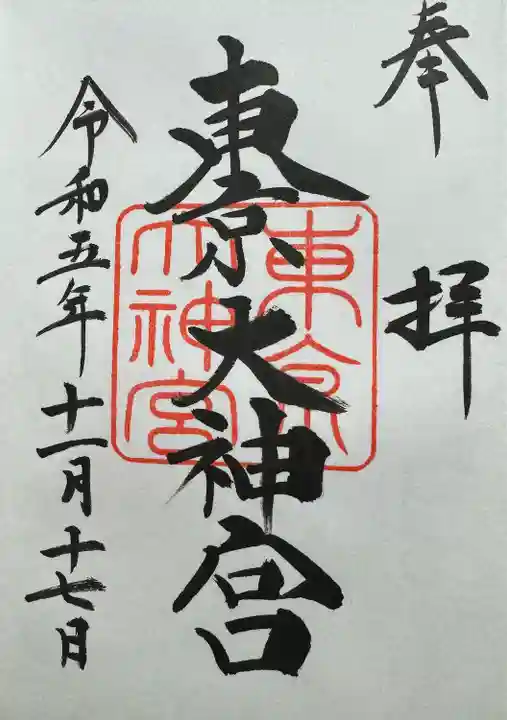 奉拝
東京大神宮
東京大神宮
令和五年十一月十七日